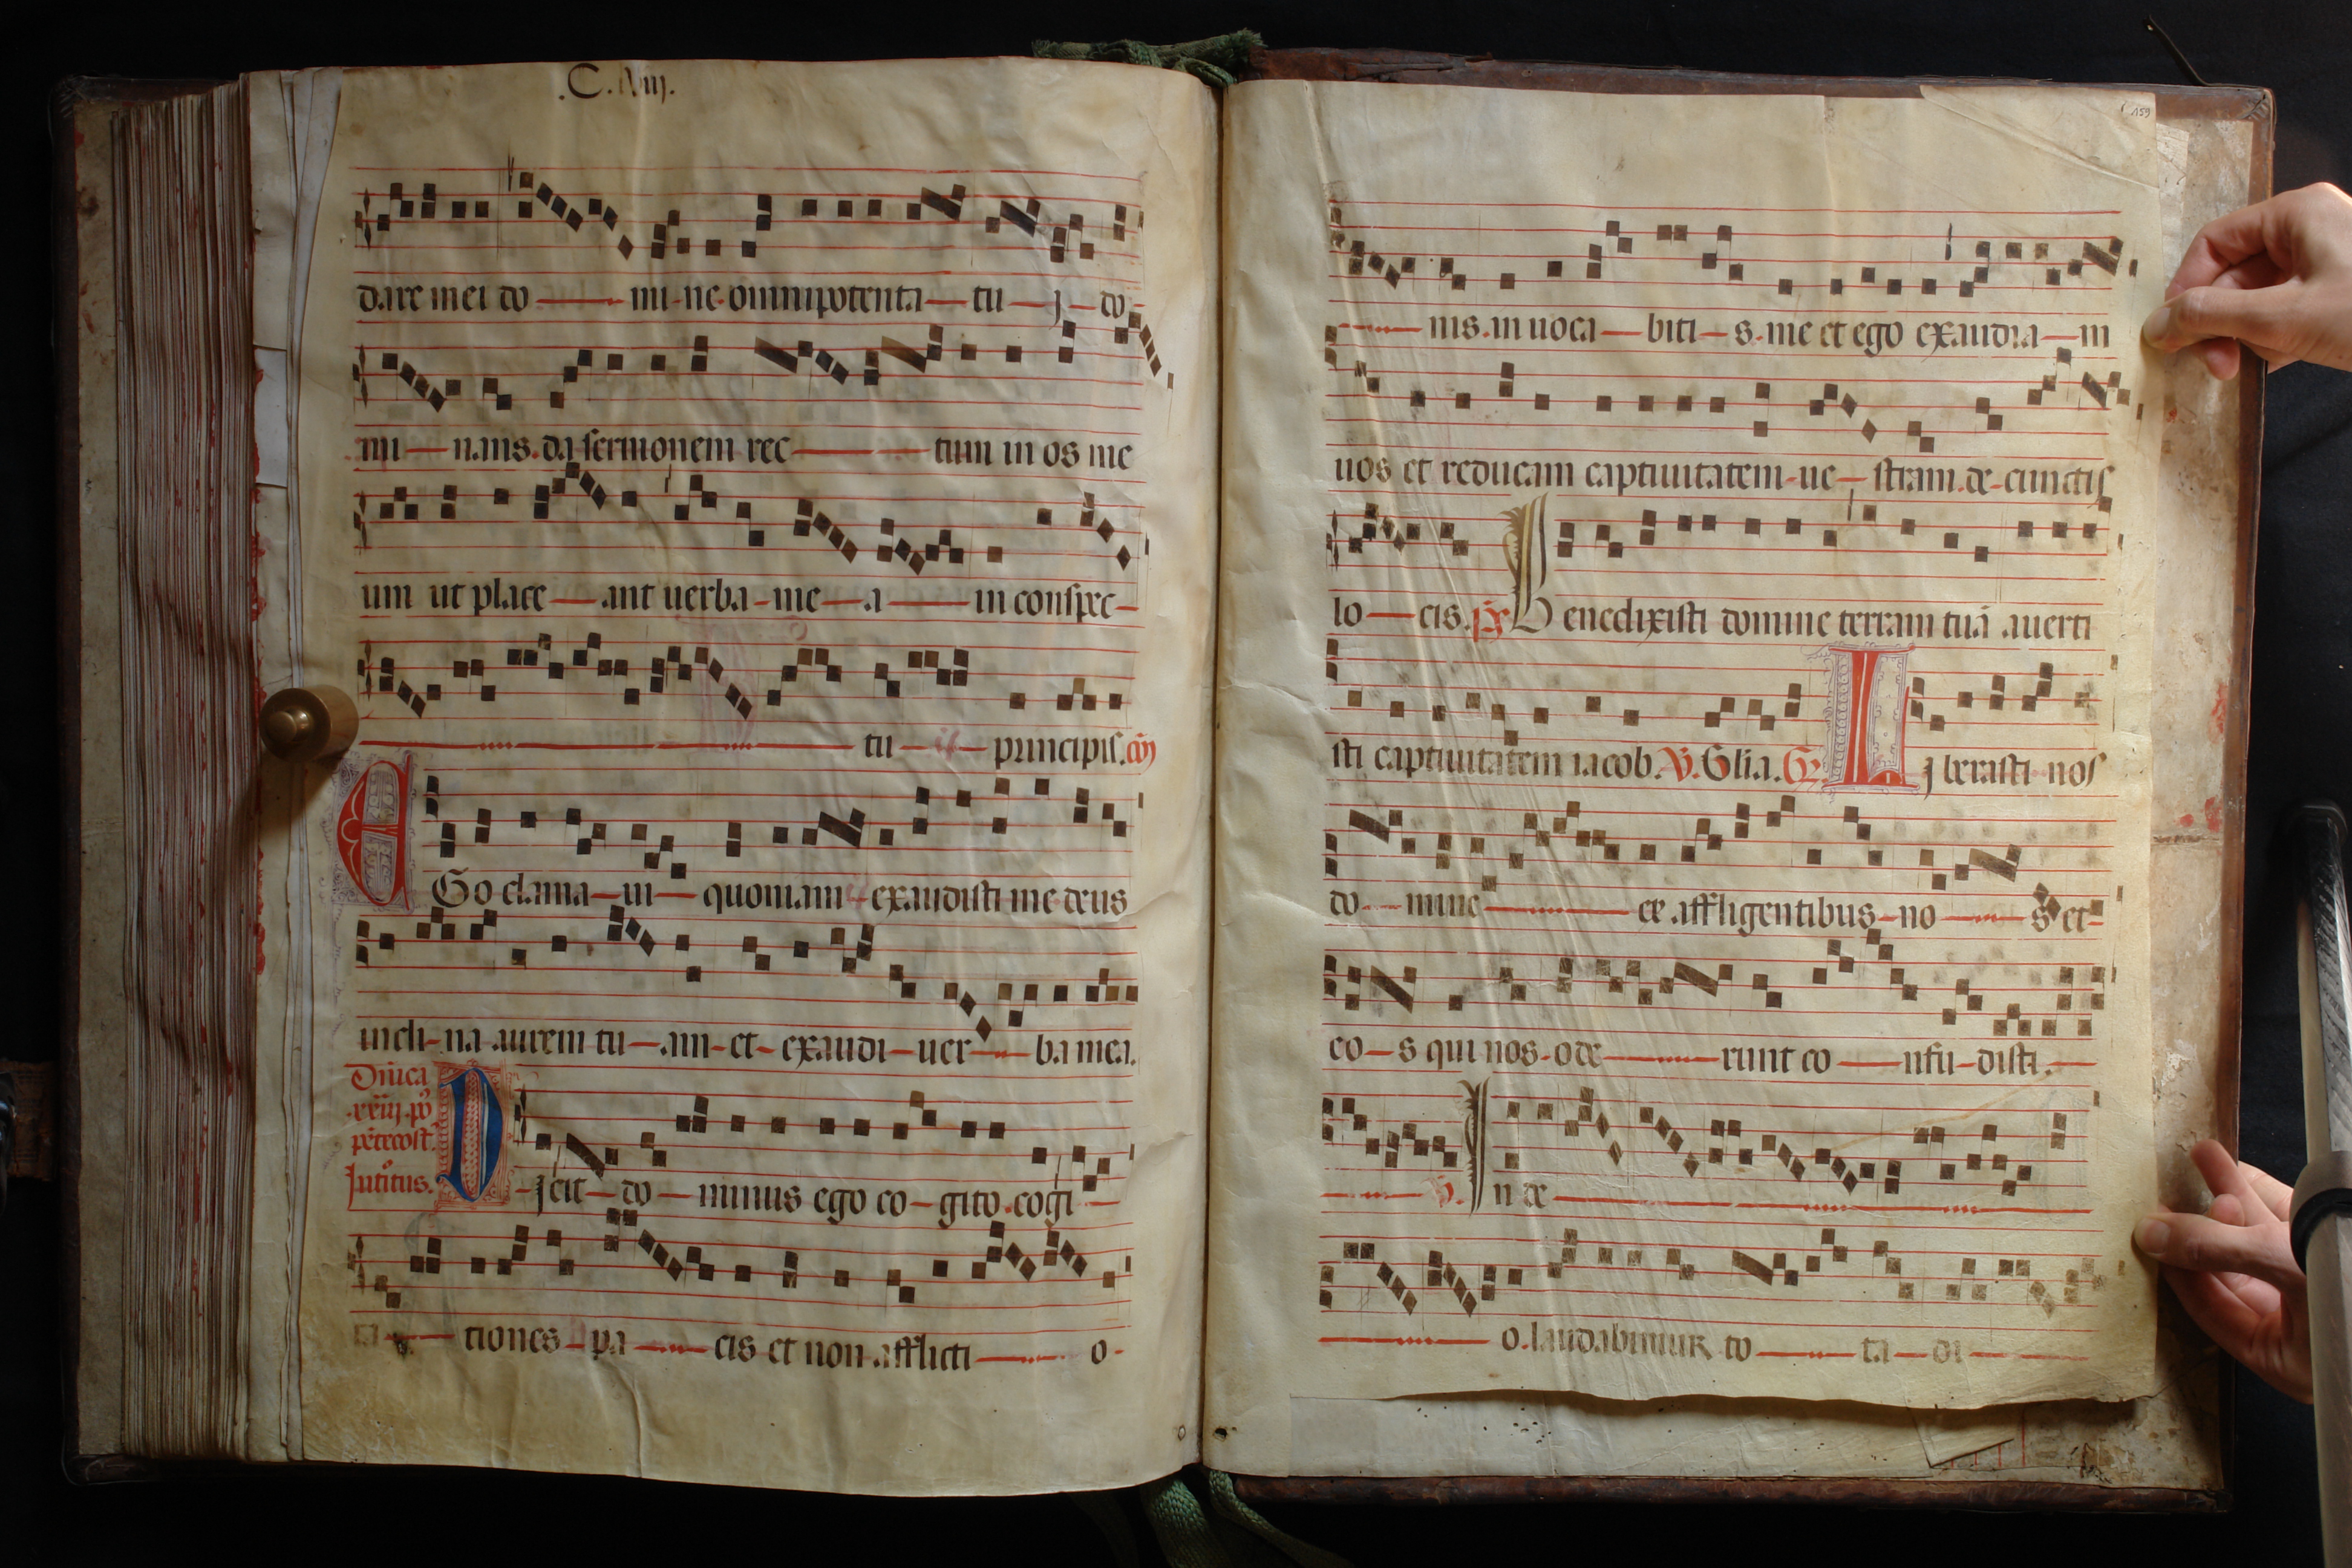 .C.lviij.
dare mei do mi ne omnipotenta tu j do
mi nans. da sermonem rec tum in os me
um ut place ant uerba me a in conspec
tu principis. cō
EGo clama ui quoniam exaudisti me deus
incli na aurem tu am et exaudi uer ba mea.
Dn̄ica
.xxiij. po
pētecost.
Jntoitus.
Djcit do minus ego co gito cogi
ta tiones pa cis et non afflicti o
159
nis. in uoca biti s. me et ego exaudia m
uos et reducam captiuitatem ue stram de cunctis
lo cis. ps Benedixisti domine terram tuā auerti
sti captiuitatem iacob. V. Glia. Gr Lj berasti nos
do mine ex affligentibus no s et
eo s qui nos ode runt co nfu disti.
V. Jn de
o. laudabimur to ta di